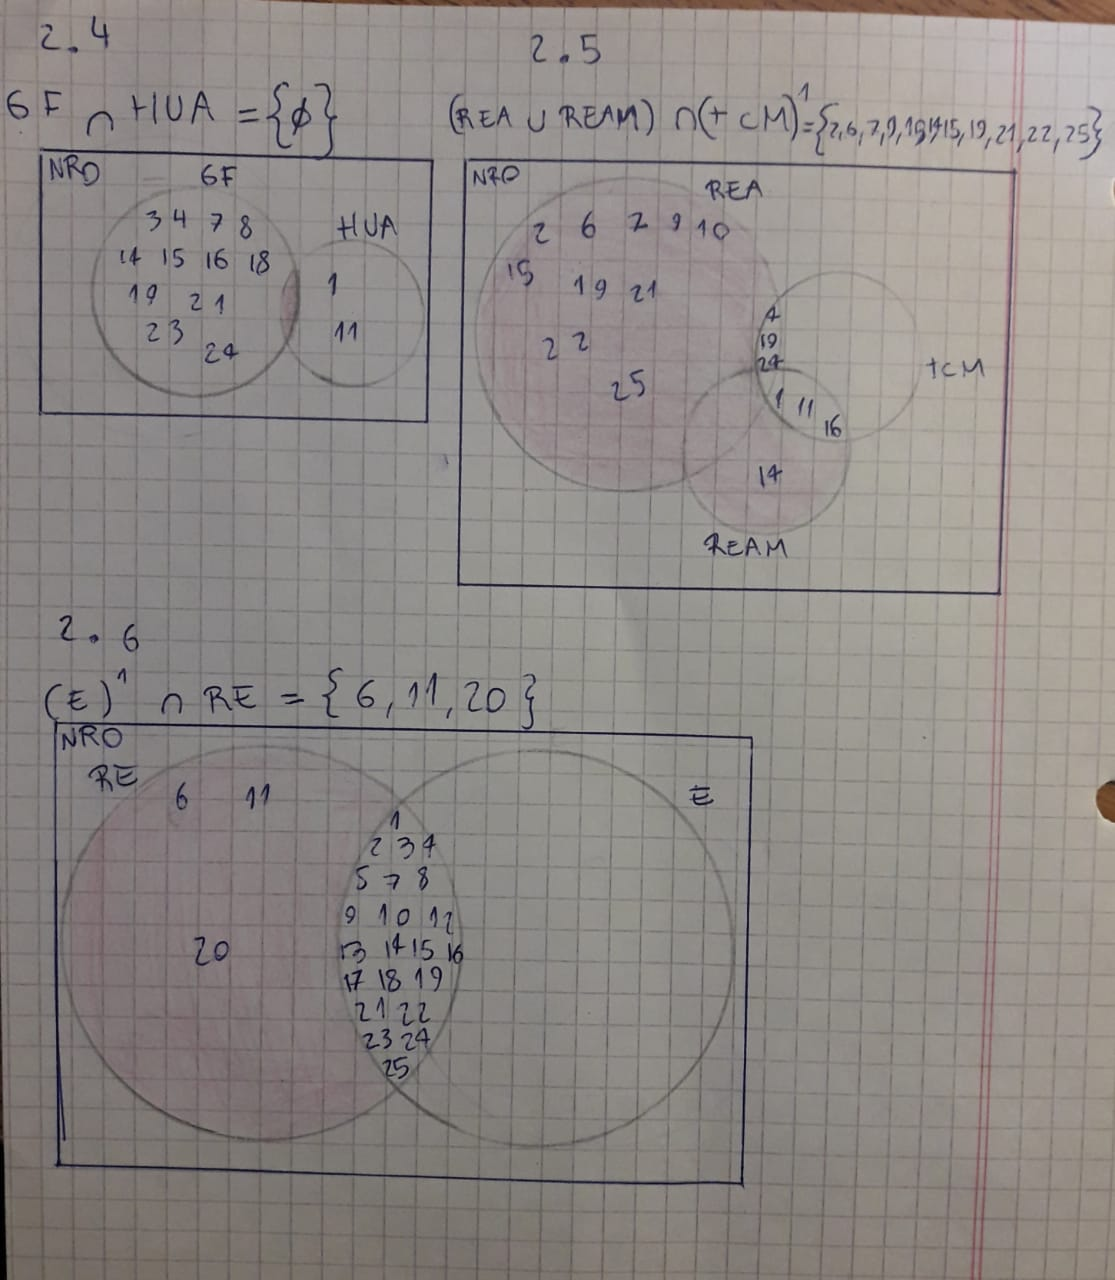 2.4
6F ∩ HUA = {∅}
NRO
6F
3 4 7 8
14 15 16 18
19 21
23
24
HUA
1
11
2.5
(REA ∪ REAM) ∩ (+CM)¹ = {2, 6, 7, 9, 10, 14, 15, 19, 21, 22, 25}
NRO
REA
2 6 7 9 10
15 19 21
22
25
4
19
24
1 11
16
+CM
14
REAM
2.6
(E)¹ ∩ RE = {6, 11, 20}
NRO
RE
E
6 11
20
1
2 3 4
5 7 8
9 10 12
13 14 15 16
17 18 19
21 22
23 24
25